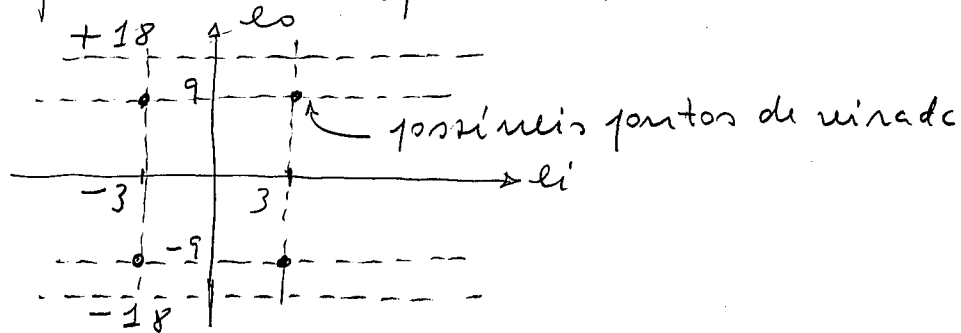 +18
eo
9
possíveis pontos de virada
-3
3
ei
-9
-18